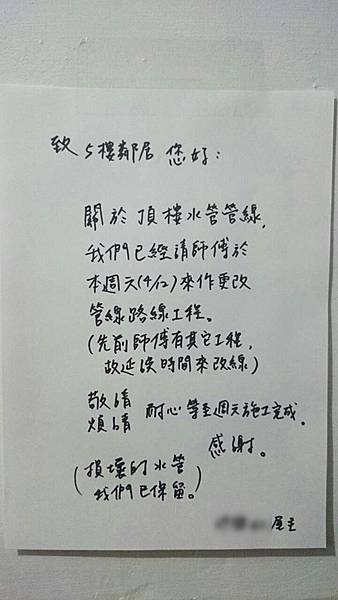 致 5樓鄰居 您好：
關於 頂樓水管管線，
我們已經請師傅於
本週六(4/12)來作更改
管線路線工程。
(先前師傅有其它工程，
故延後時間來改線)
敬請
煩請 耐心等至週六施工完成。
感謝。
(損壞的水管
我們已保留。)
屋主